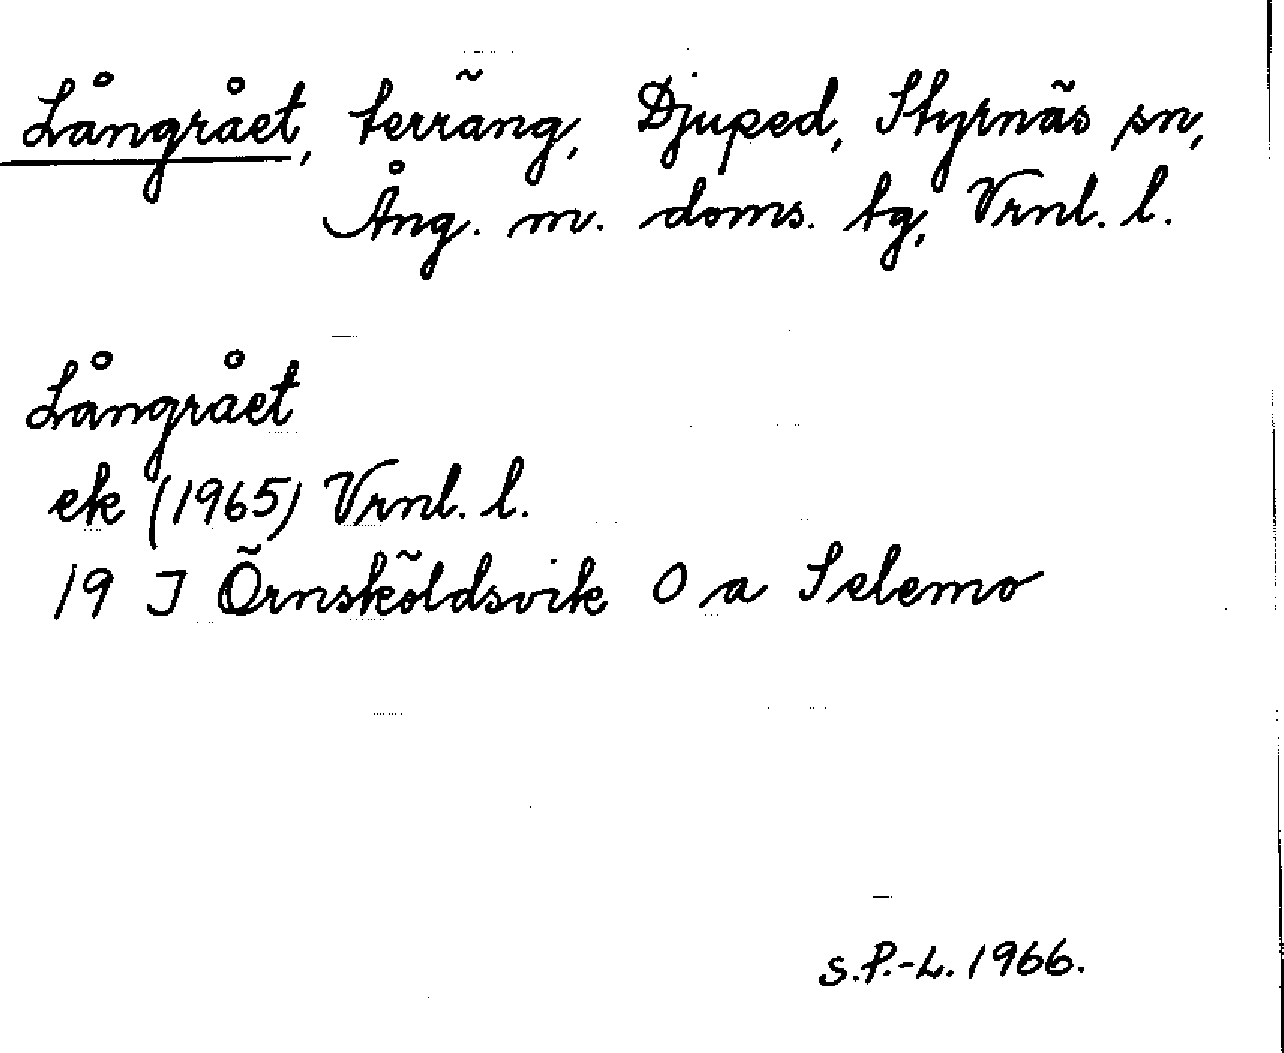 Långrået, terräng, Djuped, Styrnäs sn,
Ång. m. doms. tg, Vrnl. l.
Långrået
ek (1965) Vrnl. l.
19 J Örnsköldsvik O a Selemo
S.P.-L. 1966.